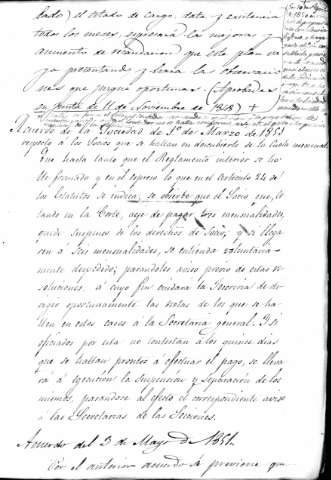 bado) el estado de cargo, data y existencia
todos los meses, espresará las mejoras y
aumento de recaudacion que este plan va-
ya presentando y hará las observacio-
nes que juzgue oportunas. (Aprobadas
en Junta de 11 de Noviembre de 1848) +
Acuerdo de la Sociedad de 1º de Marzo de 1851
respecto á los Socios que se hallan en descubierto de la cuota mensual
Que hasta tanto que el Reglamento interior se ha-
lle formado y en él espreso lo que en el artículo 24 de
los Estatutos se indica, se observe que el Socio que, es-
tando en la Corte, deje de pagar tres mensualidades,
quede suspenso de los derechos de Socio; y si llega-
ren á seis mensualidades, se entienda voluntaria-
mente despedido; pasandoles aviso previo de estas re-
soluciones, á cuyo fin cuidará la Tesorería de di-
rigir oportunamente las notas de los que se ha-
llen en estos casos á la Secretaría general. Y si
oficiados por esta no contestan á los quince dias
que se hallan prontos á efectuar el pago, se lleva-
rá á egecucion la suspension y separacion de los
mismos, pasandose al efecto el correspondiente aviso
á las Secretarías de las Secciones.
Acuerdo del 3 de Mayo de 1851.
Por el anterior acuerdo se previene que